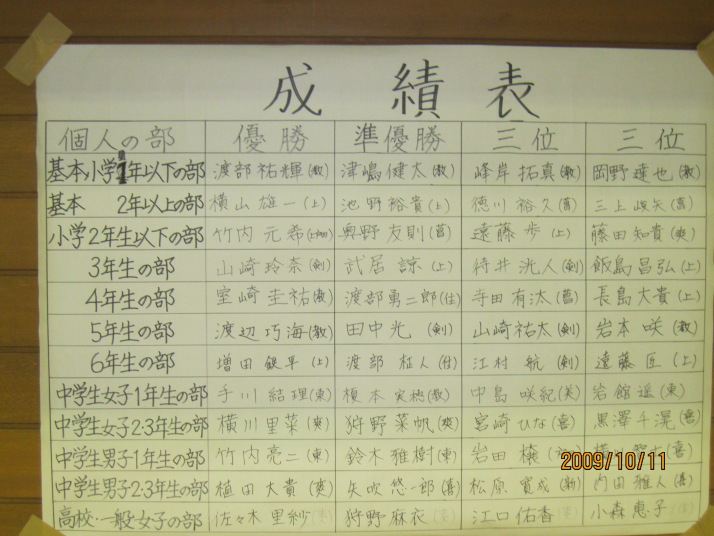 成績表
個人の部 優勝 準優勝 三位 三位
基本小学1年以下の部 渡部祐輝(教) 津嶋健太(教) 峰岸拓真(教) 岡野達也(教)
基本 2年以上の部 横山雄一(上) 池野裕貴(上) 徳川裕久(菖) 三上
小学2年生以下の部 竹内元希 奥野友則(菖) 遠藤歩(上) 藤田知貴(爽)
3年生の部 山崎玲奈(剣) 武居諒(上) 待井洸人(剣) 飯島昌弘(上)
4年生の部 室崎圭祐(教) 渡部勇二郎(住) 寺田有汰(菖) 長島大貴(上)
5年生の部 渡辺巧海(教) 田中光(剣) 山崎祐太(剣) 岩本咲(教)
6年生の部 増田銀平(上) 渡部柾人(付) 江村航(剣) 遠藤匠(上)
中学生女子1年生の部 手川結理(東) 榎本実穂(教) 中島咲紀(美) 岩館遥(東)
中学生女子2・3年生の部 横川里菜(爽) 狩野菜帆(爽) 宮崎ひな(喜) 黒澤千滉(喜)
中学生男子1年生の部 竹内亮二(東) 鈴木雅樹(東) 岩田 (喜)
中学生男子2・3年生の部 植田大貴(爽) 矢吹悠一郎(喜) 松原寛成(新) 内田雅人(喜)
高校・一般女子の部 佐々木里紗 狩野麻衣 江口佑香 小森恵子
2009/10/11